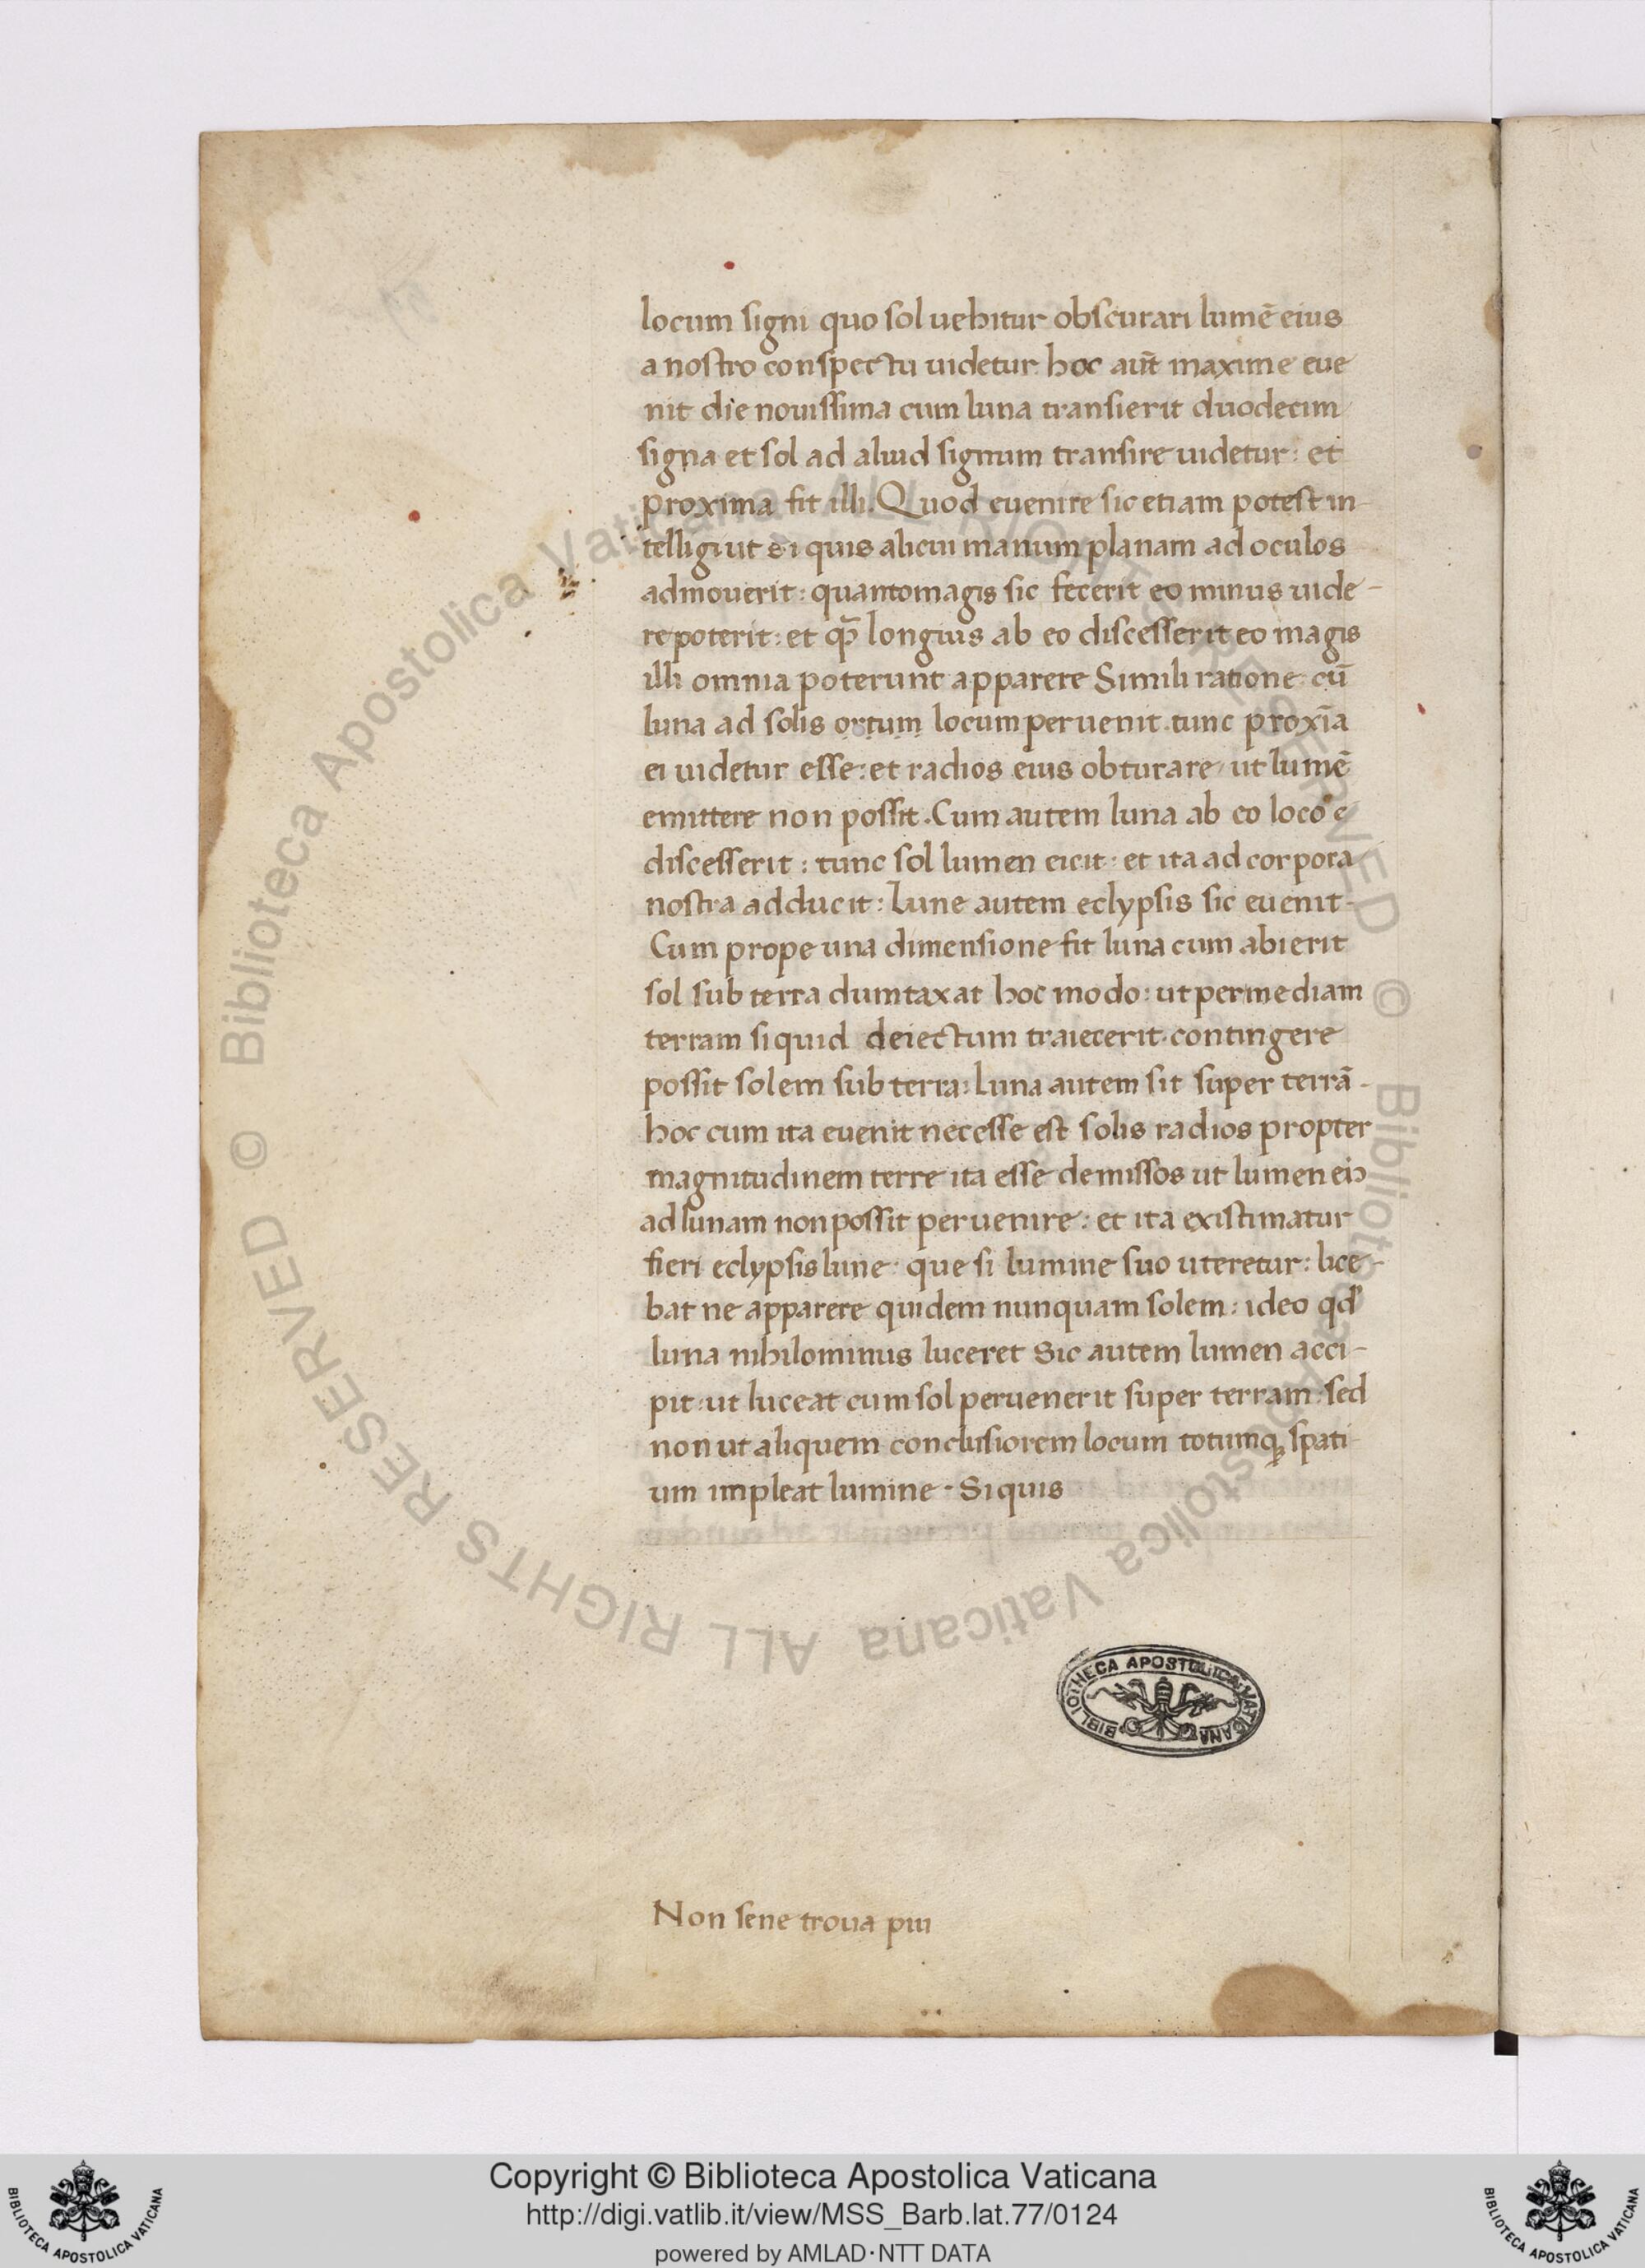 locum signi quo sol uehitur obscurari lumē eius
a nostro conspectu uidetur. hoc aut̄ maxime eue
nit die nouissima cum luna transierit duodecim
signa et sol ad aliud signum transire uidetur: et
proxima fit illi. Quod euenire sic etiam potest in-
telligi ut si quis alicui manum planam ad oculos
admouerit: quanto magis sic fecerit eo minus uide-
re poterit: et qꝫ̄ longius ab eo discesserit eo magis
illi omnia poterunt apparere Simili ratione: cū
luna ad solis ortum locum peruenit. tunc proxīa
ei uidetur esse: et radios eius obturare ut lumē
emittere non possit. Cum autem luna ab eo loco
discesserit: tunc sol lumen eicit: et ita ad corpora
nostra adducit: Lune autem eclypsis sic euenit.
Cum prope una dimensione fit luna cum abierit
sol sub terra dumtaxat hoc modo: ut per mediam
terram si quid deiectum traiecerit. contingere
possit solem sub terra: luna autem sit super terrā.
hoc cum ita euenit necesse est solis radios propter
magnitudinem terre ita esse demissos ut lumen eiꝰ
ad lunam non possit peruenire: et ita existimatur
fieri eclypsis lune: que si lumine suo uteretur: lice-
bat ne apparere quidem nunquam solem: ideo qd̓
luna nihilominus luceret Sic autem lumen acci-
pit: ut luceat cum sol peruenerit super terram: sed
non ut aliquem conclusiorem locum totumqꝫ spati
um impleat lumine. Si quis
Non sene troua piu
BIBLIOTHECA APOSTOLICA VATICANA
© Biblioteca Apostolica Vaticana ALL RIGHTS RESERVED © Biblioteca Apostolica Vaticana ALL RIGHTS RESERVED
Copyright © Biblioteca Apostolica Vaticana
http://digi.vatlib.it/view/MSS_Barb.lat.77/0124
powered by AMLAD·NTT DATA
BIBLIOTECA APOSTOLICA VATICANA
BIBLIOTECA APOSTOLICA VATICANA